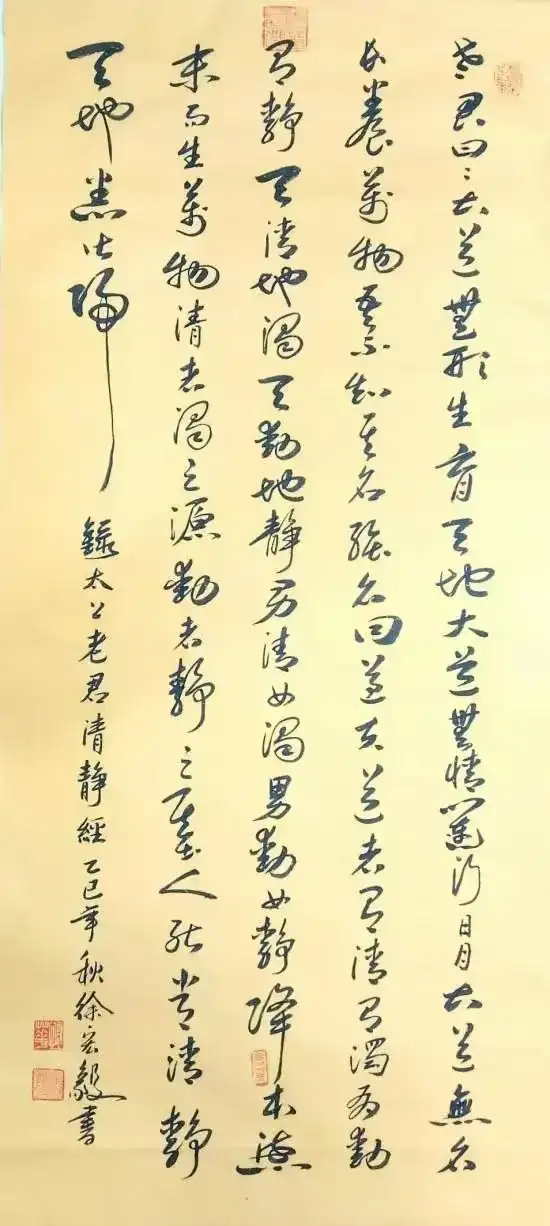 老君曰：大道無形生育天地大道無情運行日月大道無名
長養萬物吾不知其名強名曰道夫道者有清有濁有動
有靜天清地濁天動地靜男清女濁男動女靜降本流
末而生萬物清者濁之源動者靜之基人能常清靜
天地悉皆歸
錄太上老君清靜經乙巳年秋徐宏毅書